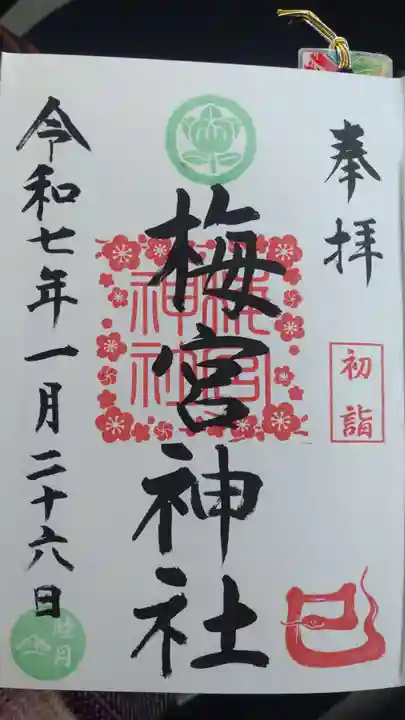 奉拝
初詣
巳
梅宮神社
令和七年一月二十六日
睦月